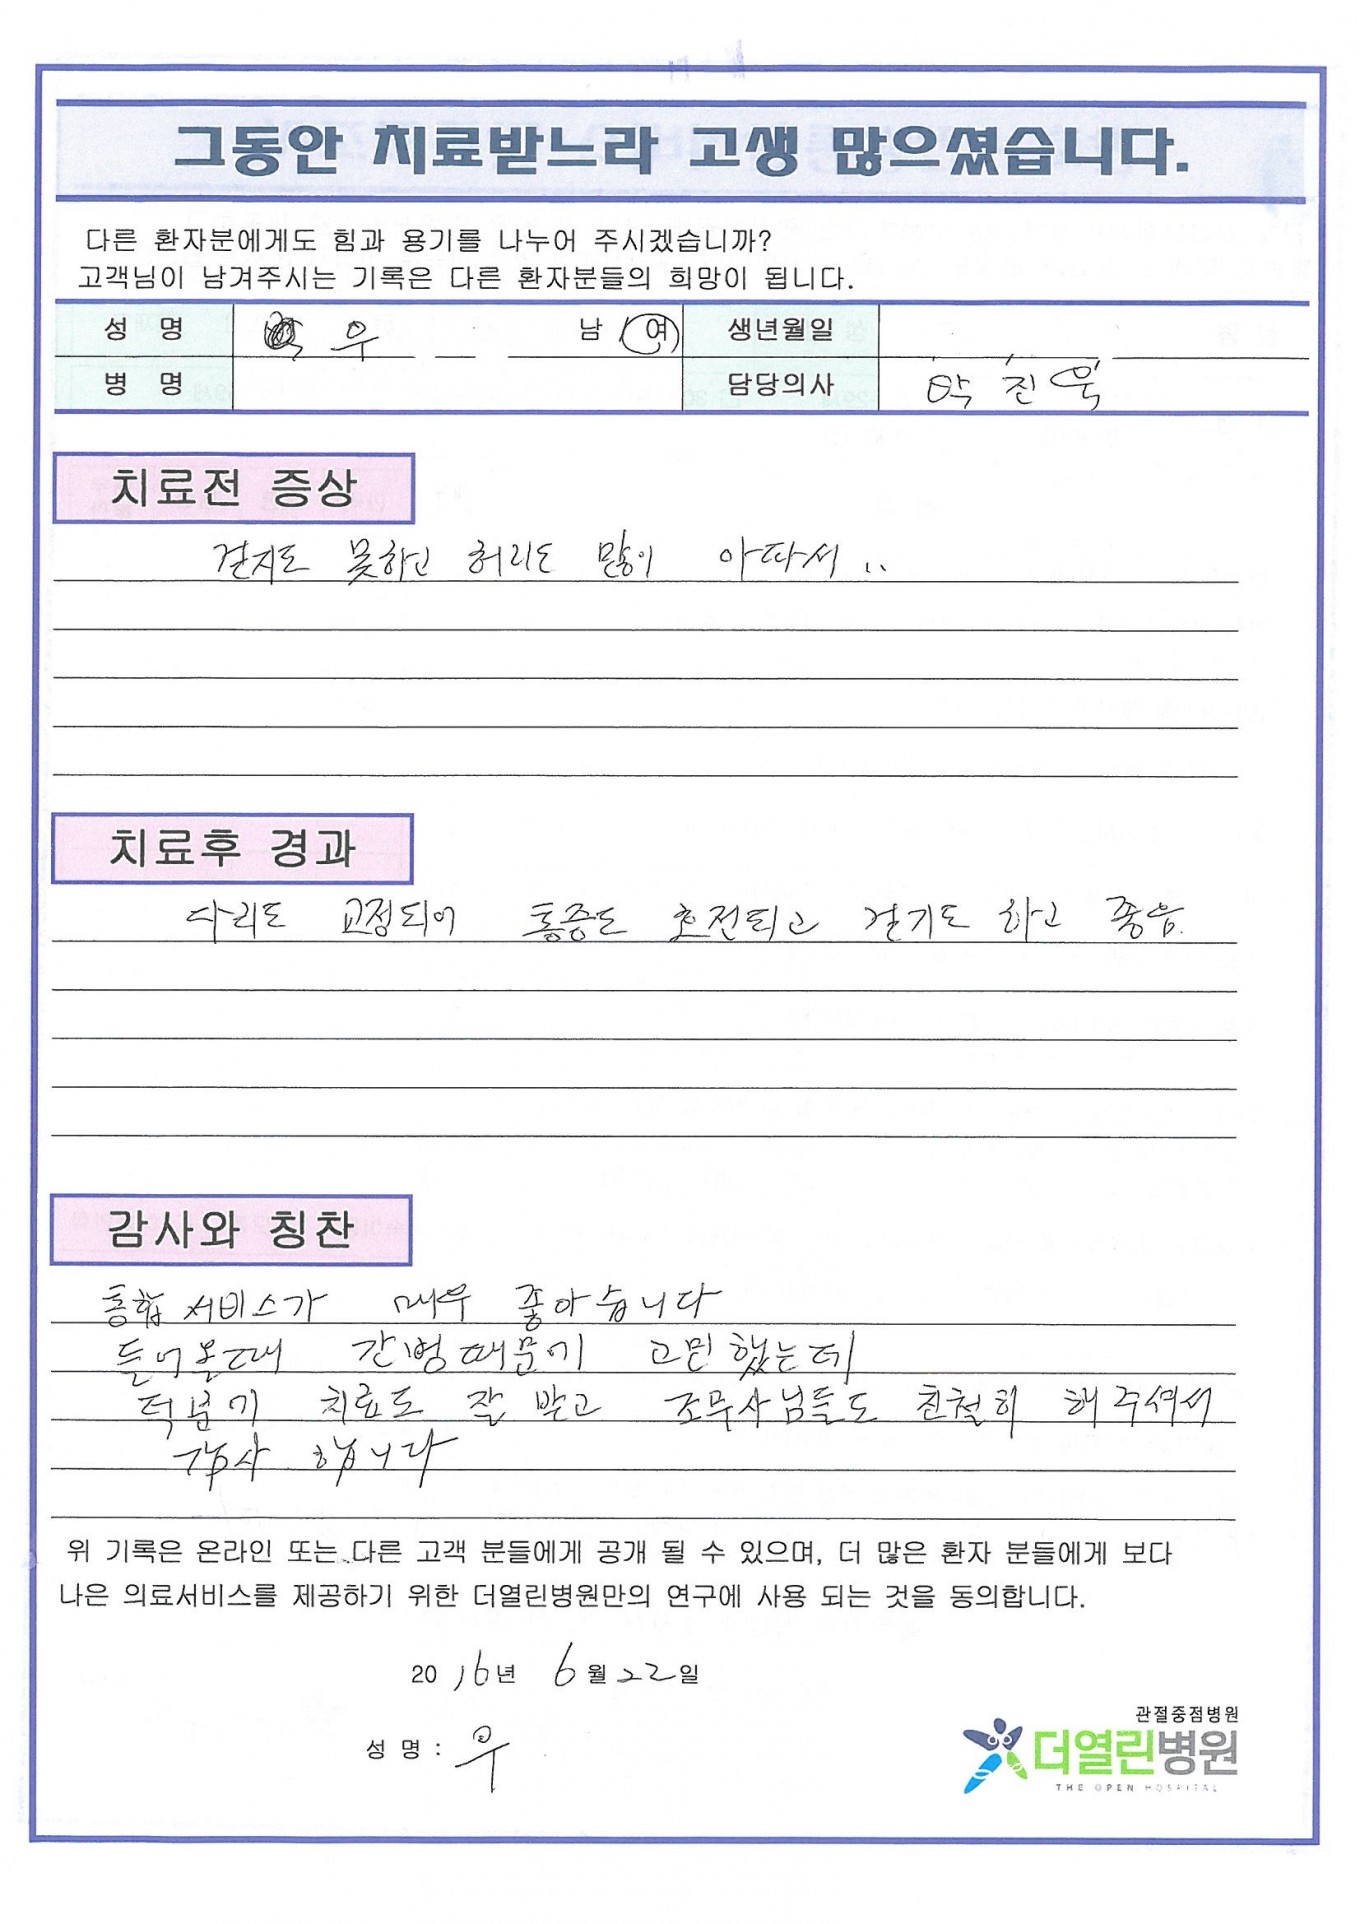 그동안 치료받느라 고생 많으셨습니다.
다른 환자분에게도 힘과 용기를 나누어 주시겠습니까?
고객님이 남겨주시는 기록은 다른 환자분들의 희망이 됩니다.
성 명 우 남 / 여 생년월일
병 명 담당의사 박진욱
치료전 증상
걷지도 못하고 허리도 많이 아파서 ..
치료후 경과
다리도 교정되어 통증도 호전되고 걷기도 하고 좋음.
감사와 칭찬
통합 서비스가 매우 좋아습니다
들어올때 간병때문에 고민했는데
덕분에 치료도 잘 받고 조무사님들도 친철히 해주셔서
감사 합니다
위 기록은 온라인 또는 다른 고객 분들에게 공개 될 수 있으며, 더 많은 환자 분들에게 보다
나은 의료서비스를 제공하기 위한 더열린병원만의 연구에 사용 되는 것을 동의합니다.
2016년 6월 22일
성 명 : 우
관절중점병원
더열린병원
THE OPEN HOSPITAL